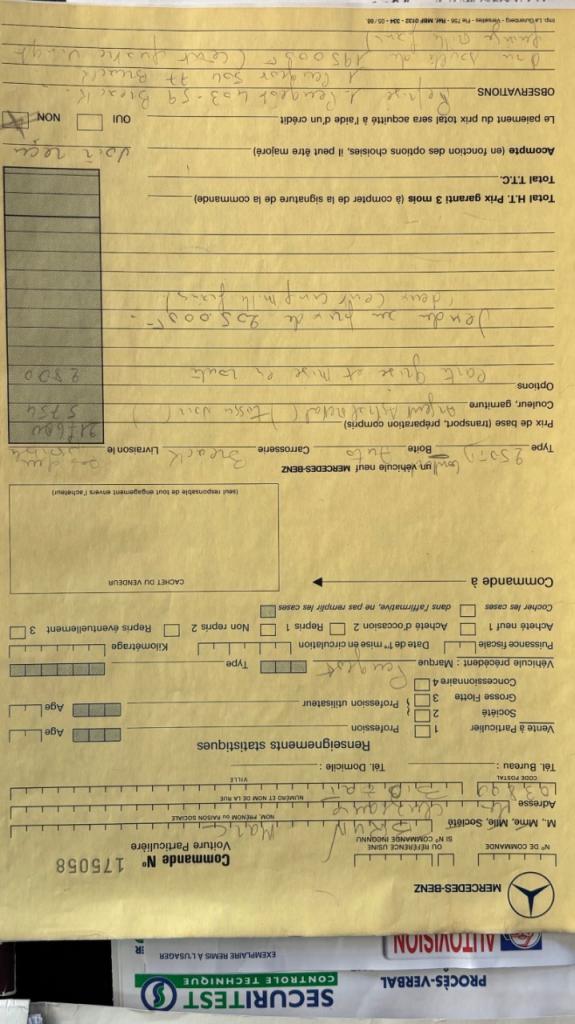 SECURITEST
CONTROLE TECHNIQUE
PROCÈS-VERBAL
EXEMPLAIRE REMIS À L'USAGER
AUTOVISION
MERCEDES-BENZ
N° DE COMMANDE
OU RÉFÉRENCE USINE
SI N° COMMANDE INCONNU
Commande N° 175058
Voiture Particulière
M., Mme, Mlle, Société BRUN Marc
NOM, PRÉNOM OU RAISON SOCIALE
Adresse
NUMÉRO ET NOM DE LA RUE
CODE POSTAL
VILLE
Tél. Bureau : Tél. Domicile :
Renseignements statistiques
Vente à Particulier 1 Profession Age
Société 2
Grosse Flotte 3 Profession utilisateur Age
Concessionnaire 4
Véhicule précédent : Marque Peugeot Type
Puissance fiscale Date de 1re mise en circulation Kilométrage
Acheté neuf 1 Acheté d'occasion 2 Repris 1 Non repris 2 Repris éventuellement 3
Cocher les cases dans l'affirmative, ne pas remplir les cases
Commande à
CACHET DU VENDEUR
(seul responsable de tout engagement envers l'acheteur)
un véhicule neuf MERCEDES-BENZ
Type 250 TD Boîte Auto Carrosserie Breack Livraison le
Prix de base (transport, préparation compris) 217600
Couleur, garniture Argent Astral métal (Tissu noir) 5754
Options
Carte grise et mise en route 2800
Vendu au prix de 205.000F -
(deux cent cinq mille francs)
Total H.T. Prix garanti 3 mois (à compter de la signature de la commande)
Total T.T.C.
Acompte (en fonction des options choisies, il peut être majoré) voir reçu
Le paiement du prix total sera acquitté à l'aide d'un crédit OUI NON
OBSERVATIONS Reprise 1 Peugeot 403-59 Breack -
1 Peugeot 504 77 Breack
Prix solde du 195000F (cent quatre vingt
quinze mille francs)
Imp. La Gutenberg - Versailles - Fle 756 - Réf. MBF 0132 - 334 - 05/88